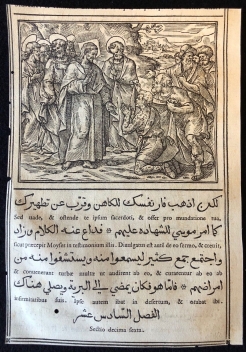 لكن اذهب فار نفسك للكاهن وقرب عن تطهيرك
Sed uade, & ostende te ipsum sacerdoti, & offer pro mundatione tua,
كما امر موسي للشهاده عليهم * فذاع عنه الكلام وزاد
sicut præcepit Moyses in testimonium illis. Diuulgatus est autē de eo sermo, & creuit,
واجتمع جمع كثير ليسمعوا منه ويستشفوا منه من
& conuenerunt turbæ multæ ut audirent ab eo, & curarentur ab eo ab
امراضهم * فاما هو فكان يمضي الي البرية ويصلي هناك
infirmitatibus suis. Ipse autem ibat in desertum, & orabat ibi.
الفصل السادس عشر
Sectio decima sexta.